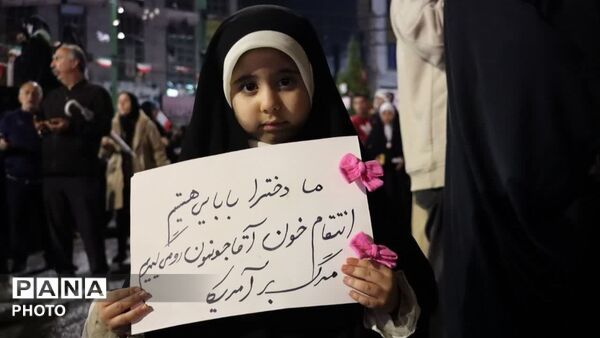 ما دخترا بابایی هستیم
انتقام خون آقاجونمون رو می‌گیریم
مرگ بر آمریکا
PANA
PHOTO